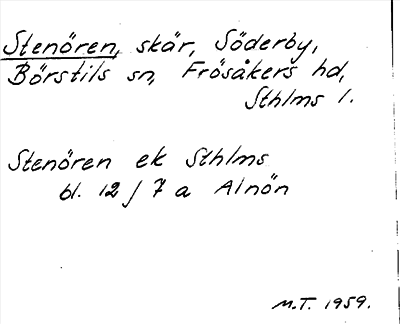 Stenören, skär, Söderby,
Börstils sn, Frösåkers hd,
Sthlms l.
Stenören ek Sthlms
bl. 12 J 7 a Alnön
M.T. 1959.